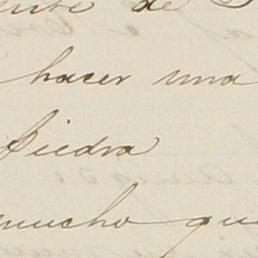 de
hacer una
piedra
mucho